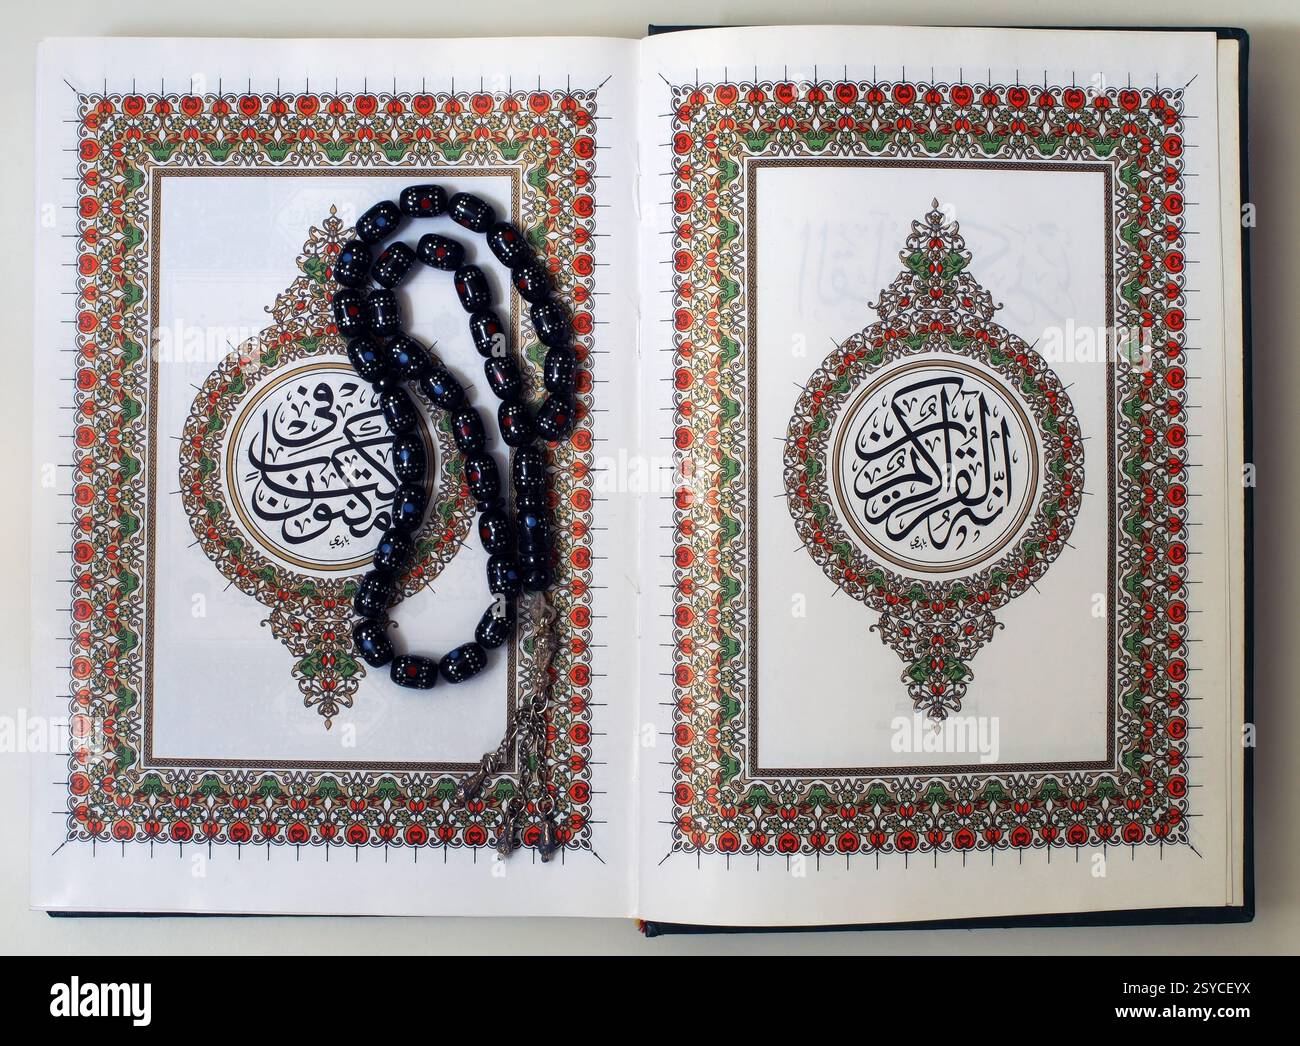 إنّه لقرآن كريم
في كتاب مكنون
alamy
Image ID: 2SYCEYX
www.alamy.com